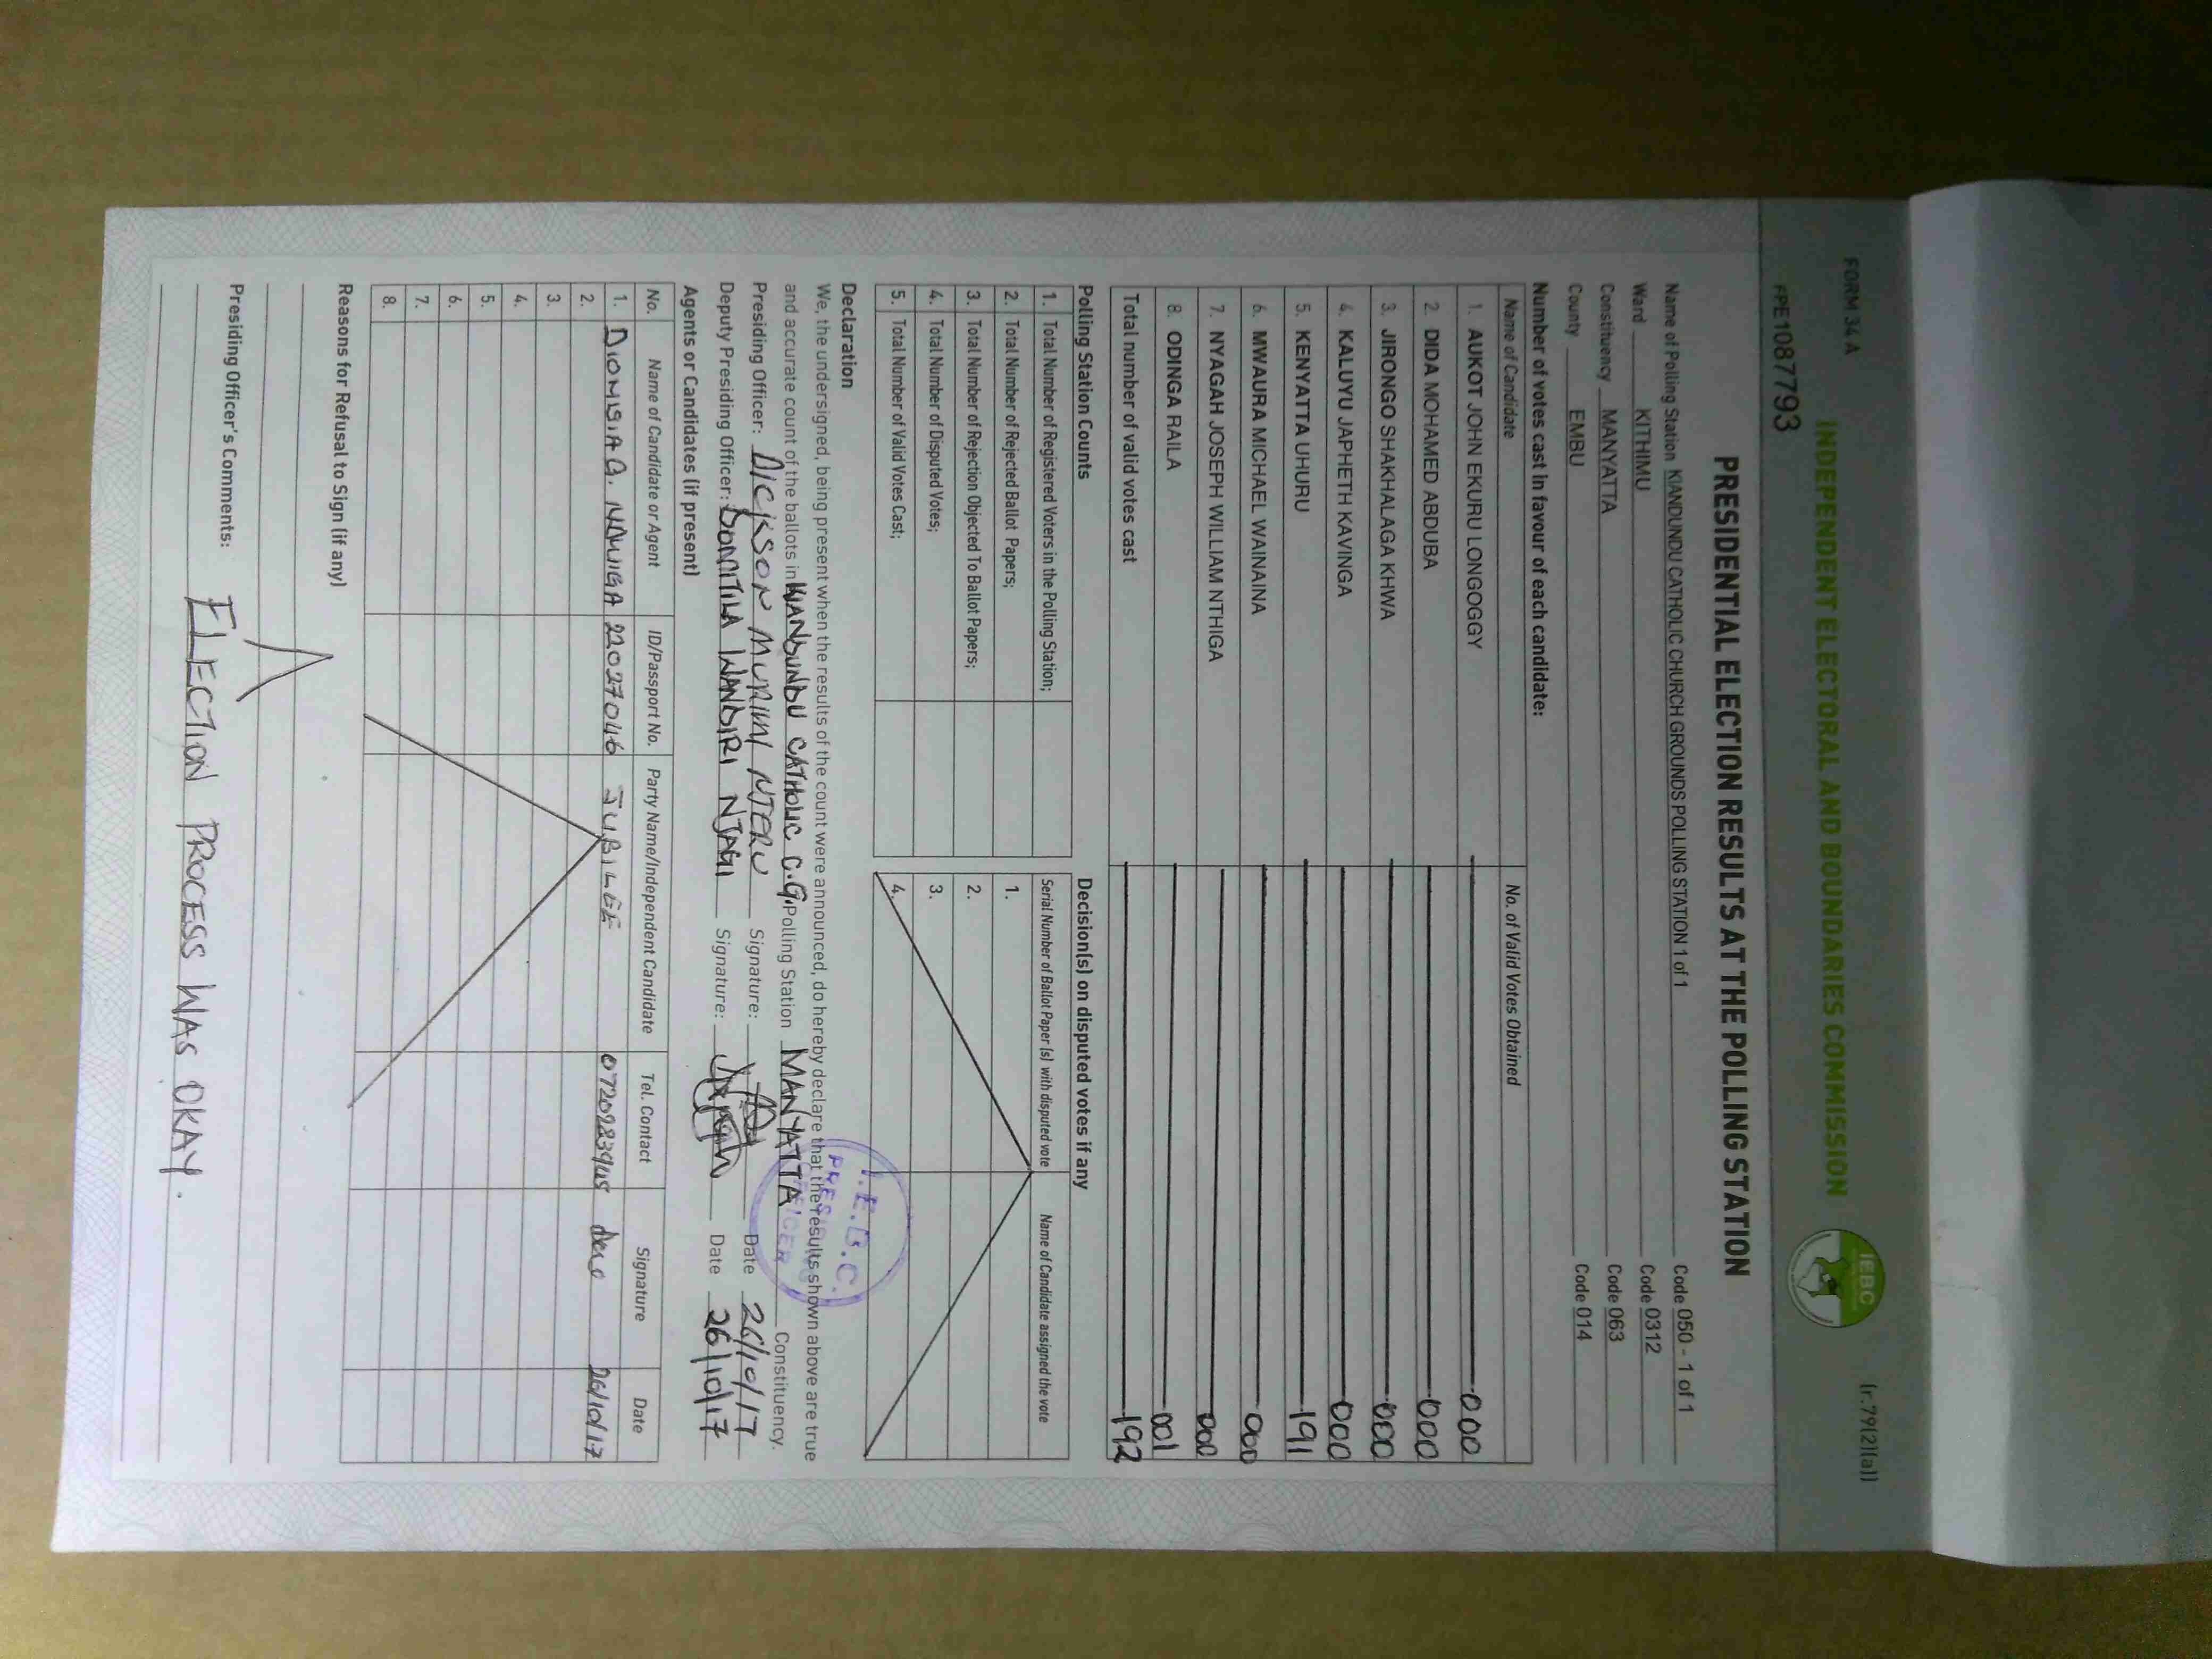 FORM 34 A
(r.79(2)(a))
INDEPENDENT ELECTORAL AND BOUNDARIES COMMISSION
IEBC
FPE1087793
PRESIDENTIAL ELECTION RESULTS AT THE POLLING STATION
Name of Polling Station KIANDUNDU CATHOLIC CHURCH GROUNDS POLLING STATION 1 of 1 Code 050 - 1 of 1
Ward KITHIMU Code 0312
Constituency MANYATTA Code 063
County EMBU Code 014
Number of votes cast in favour of each candidate:
Name of Candidate No. of Valid Votes Obtained
1. AUKOT JOHN EKURU LONGOGGY 000
2. DIDA MOHAMED ABDUBA 000
3. JIRONGO SHAKHALAGA KHWA 000
4. KALUYU JAPHETH KAVINGA 000
5. KENYATTA UHURU 191
6. MWAURA MICHAEL WAINAINA 000
7. NYAGAH JOSEPH WILLIAM NTHIGA 000
8. ODINGA RAILA 001
Total number of valid votes cast 192
Polling Station Counts Decision(s) on disputed votes if any
1. Total Number of Registered Voters in the Polling Station;
2. Total Number of Rejected Ballot Papers;
3. Total Number of Rejection Objected To Ballot Papers;
4. Total Number of Disputed Votes;
5. Total Number of Valid Votes Cast;
Serial Number of Ballot Paper (s) with disputed vote Name of Candidate assigned the vote
1.
2.
3.
4.
Declaration
We, the undersigned, being present when the results of the count were announced, do hereby declare that the results shown above are true
and accurate count of the ballots in KIANDUNDU CATHOLIC C.G. Polling Station MANYATTA Constituency.
I.E.B.C.
Presiding Officer: DICKSON MURIMI NJERU Signature: Date 26/10/17
Deputy Presiding Officer: DOMITILA WANDIRI NJAGI Signature: Date 26/10/17
Agents or Candidates (if present)
No. Name of Candidate or Agent ID/Passport No. Party Name/Independent Candidate Tel. Contact Signature Date
1. 22027046 JUBILEE 26/10/17
2.
3.
4.
5.
6.
7.
8.
Reasons for Refusal to Sign (if any)
Presiding Officer's Comments: ELECTION PROCESS WAS OKAY.